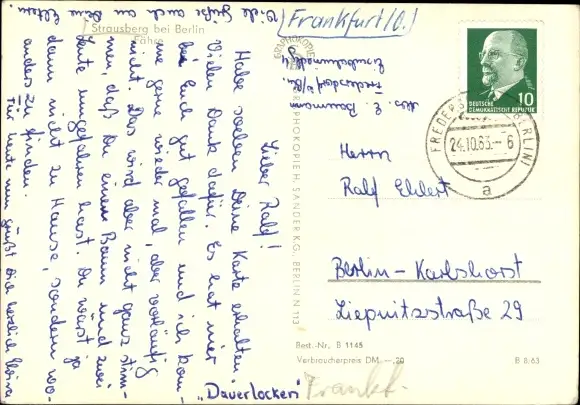 Viele Grüße auch an Deine Eltern.
Strausberg bei Berlin
Fähre
Lieber Ralf!
Habe soeben Deine Karte erhalten.
Vielen Dank dafür. Es hat mir
bei Euch gut gefallen und ich kom-
me gerne wieder mal, aber vorläufig
nicht. Das wird aber nicht ganz stim-
men, daß Du einen Baum und zwei
Leute umgefahren hast. Du wärst ja
dann nicht zu Hause, sondern wo-
anders zu finden.
Für heute nun grüßt Dich herzlich
"Dauerlocken"
(Frankfurt/O.)
Abs. E. Baumann
Fredersdorf/Bln.
HANDPHOTOKOPIE H. SANDER KG, BERLIN N 113
DEUTSCHE
DEMOKRATISCHE REPUBLIK
10
24.10.63.-6
a
Herrn
Ralf Ehlert
Berlin-Karlshorst
Liepnitzstraße 29
Best.-Nr. B 1145
Verbraucherpreis DM -,20
B 8/63
Frankf.